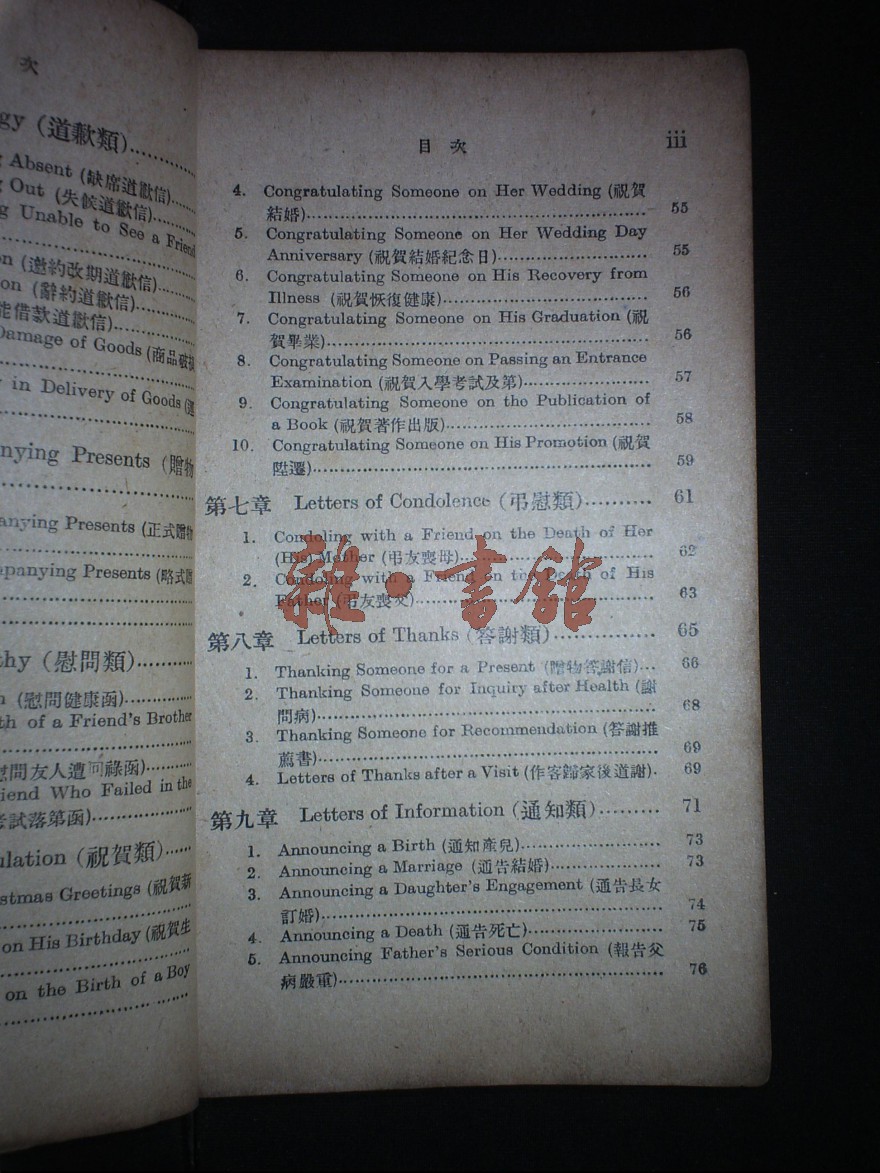 次
gy (道歉類)
Absent (缺席道歉信)
Out (失候道歉信)
Unable to See a Friend
on (邀約改期道歉信)
on (辭約道歉信)
能借款道歉信)
Damage of Goods (商品破損
in Delivery of Goods (運
nying Presents (贈物
anying Presents (正式贈物
panying Presents (略式贈
thy (慰問類)
n (慰問健康函)
th of a Friend's Brother
慰問友人遭回祿函)
iend Who Failed in the
考試落第函)
ulation (祝賀類)
stmas Greetings (祝賀新
on His Birthday (祝賀生
on the Birth of a Boy
目 次 iii
4. Congratulating Someone on Her Wedding (祝賀
結婚) 55
5. Congratulating Someone on Her Wedding Day
Anniversary (祝賀結婚紀念日) 55
6. Congratulating Someone on His Recovery from
Illness (祝賀恢復健康) 56
7. Congratulating Someone on His Graduation (祝
賀畢業) 56
8. Congratulating Someone on Passing an Entrance
Examination (祝賀入學考試及第) 57
9. Congratulating Someone on the Publication of
a Book (祝賀著作出版) 58
10. Congratulating Someone on His Promotion (祝賀
陞遷) 59
第七章 Letters of Condolence (弔慰類) 61
1. Condoling with a Friend on the Death of Her
(His) Mother (弔友喪母) 62
2. Condoling with a Friend on the Death of His
Father (弔友喪父) 63
雜·書館
第八章 Letters of Thanks (答謝類) 65
1. Thanking Someone for a Present (贈物答謝信) 66
2. Thanking Someone for Inquiry after Health (謝
問病) 68
3. Thanking Someone for Recommendation (答謝推
薦書) 69
4. Letters of Thanks after a Visit (作客歸家後道謝). 69
第九章 Letters of Information (通知類) 71
1. Announcing a Birth (通知產兒) 73
2. Announcing a Marriage (通告結婚) 73
3. Announcing a Daughter's Engagement (通告長女
訂婚) 74
4. Announcing a Death (通告死亡) 75
5. Announcing Father's Serious Condition (報告父
病嚴重) 76